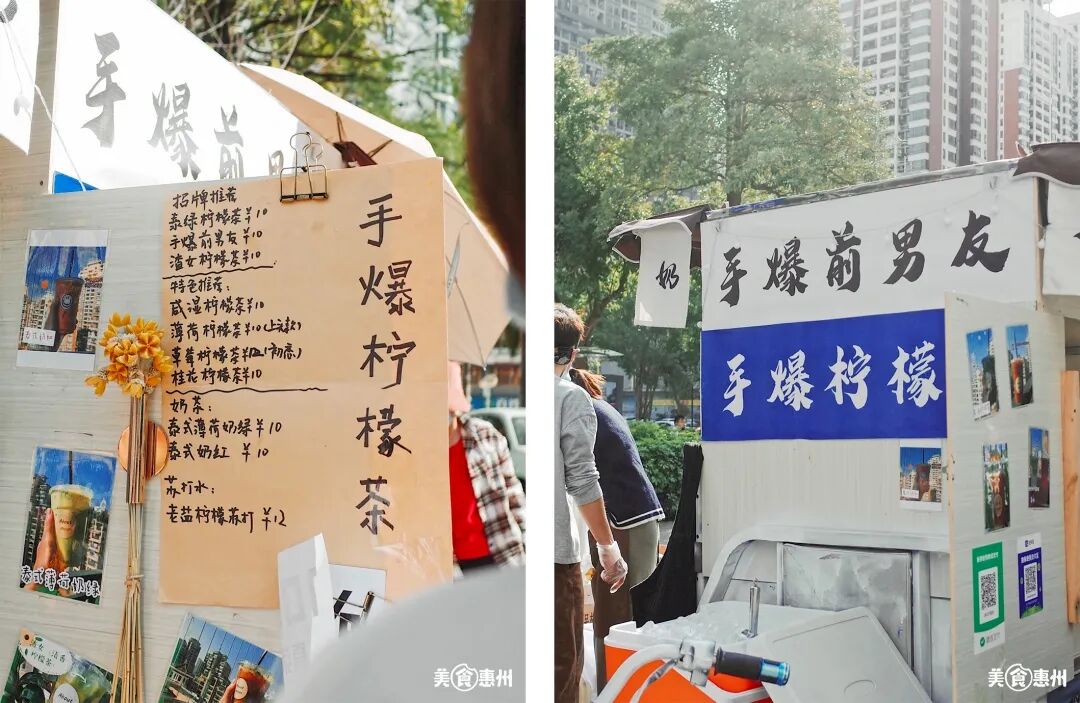 手爆前男
招牌推荐
泰绿柠檬茶¥10
手爆前男友¥10
渣女柠檬茶¥10
特色推荐:
咸湿柠檬茶¥10
薄荷柠檬茶¥10(上头款)
草莓柠檬茶
初恋)
桂花柠檬茶¥10
奶茶:
泰式薄荷奶绿¥10
泰式奶红 ¥10
苏打水:
老盐柠檬苏打¥12
手爆柠檬茶
泰式奶红
泰式薄荷奶绿
渣女
柠檬茶
美食惠州
奶
手爆前男友
手爆柠檬
美食惠州